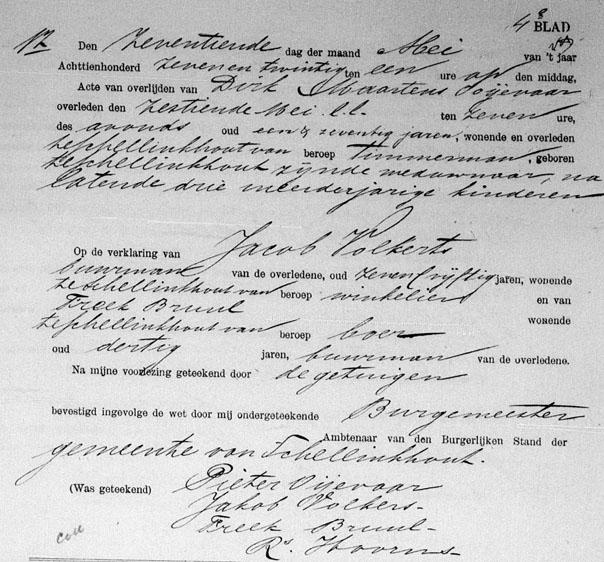 4e BLAD
17 Den Zeventiende dag der maand Mei van 't jaar
Achttienhonderd Zeven en twintig ten een ure op den middag,
Acte van overlijden van Dirk Maartens Vijevaar
overleden den Zestiende Mei l.l. ten Zeven ure,
des avonds oud een & zeventig jaren, wonende en overleden
te Schellinkhout van beroep timmerman, geboren
te Schellinkhout zijnde weduwnaar, na
latende drie meerderjarige kinderen
Op de verklaring van Jacob Volkerts
buurman van de overledene, oud Zeven & vijftig jaren, wonende
te Schellinkhout van beroep winkelier en van
Freek Bruul wonende
te Schellinkhout van beroep boer
oud dertig jaren, buurman van de overledene.
Na mijne voorlezing geteekend door de getuigen
bevestigd ingevolge de wet door mij ondergeteekende Burgemeester
Ambtenaar van den Burgerlijken Stand der
gemeente van Schellinkhout.
(Was geteekend) Pieter Vijevaar
Jakob Volkers
Freek Bruul
Rs. Hoorns